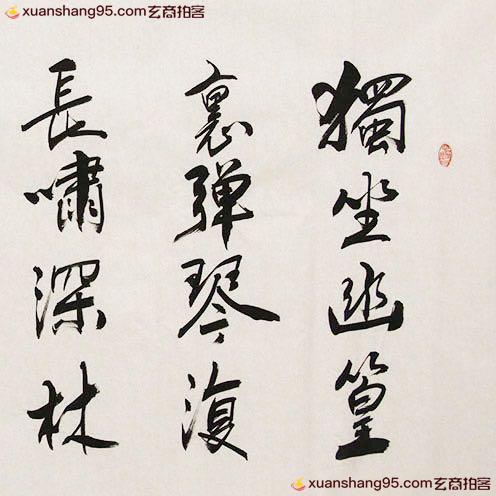 xuanshang95.com玄商拍客
獨坐幽篁
裏弹琴復
長嘯深林
xuanshang95.com玄商拍客